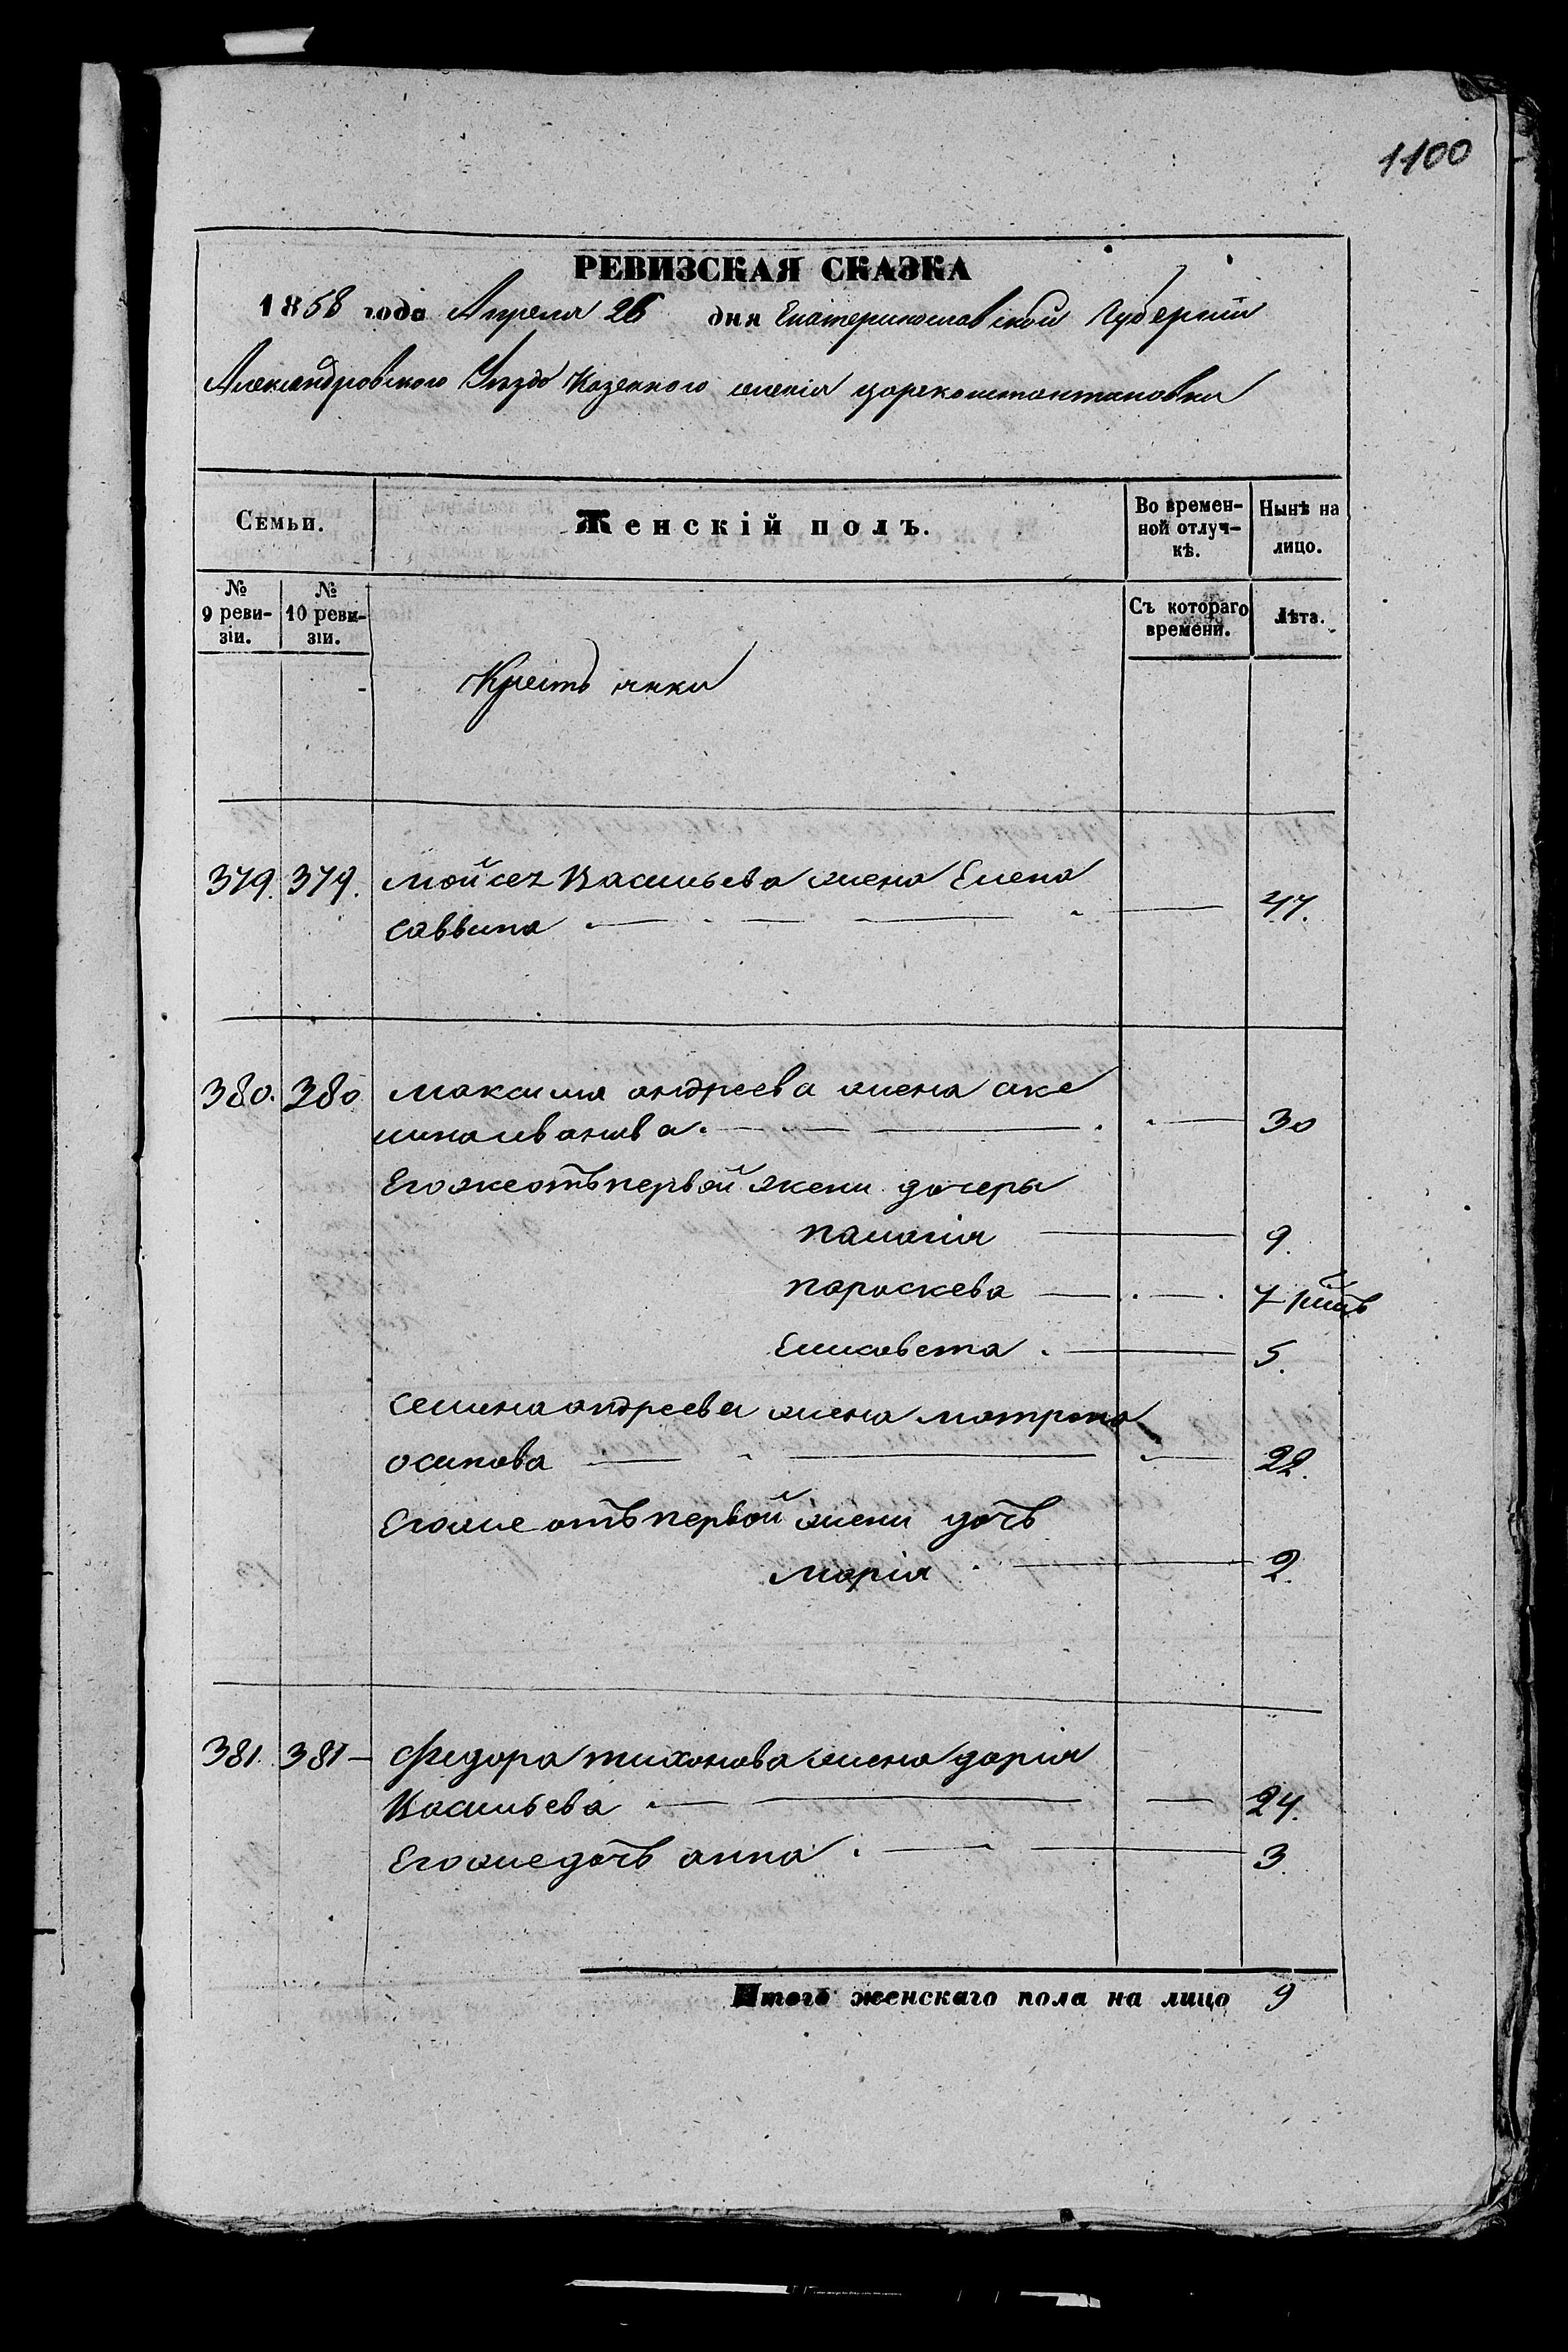 1100
РЕВИЗСКАЯ СКАЗКА
1858 года Апреля 26 дня Екатеринославской Губернiи
Александровского Уезда Казенного селенiя Цареконстантиновки
Семьи. Женскiй полъ. Во времен- Нынѣ на
ной отлуч- лицо.
кѣ.
№ № Съ котораго Лѣта.
9 реви- 10 реви- времени.
зiи. зiи.
Крестьянки
379. 379. Мойсея Васильева жена Елена
саввина 47.
380. 380 Максима андреева жена аке
линаиванова 30
Егожеотъпервой жени дочеры
палагiя 9.
пароскева 7
Елисавета 5.
Семенаандреева жена матрона
осипова 22.
Егоже отъпервой жени дочъ
Марiя 2.
381. 381 Федора тихонова жена дарiя
Васильева 24.
Егожедочъ анна 3.
Итого женскаго пола на лицо 9